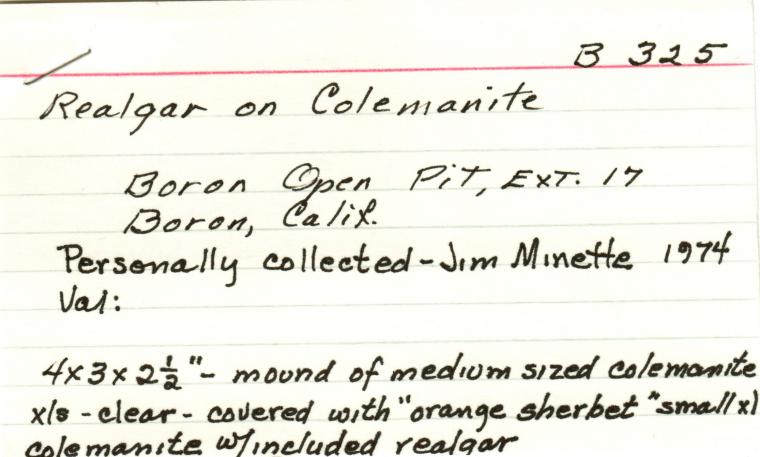 B 325
Realgar on Colemanite
Boron Open Pit, Ext. 17
Boron, Calif.
Personally collected - Jim Minette 1974
Val:
4x3x2½" - mound of medium sized colemanite
xls - clear - covered with "orange sherbet" small xl
colemanite w/included realgar